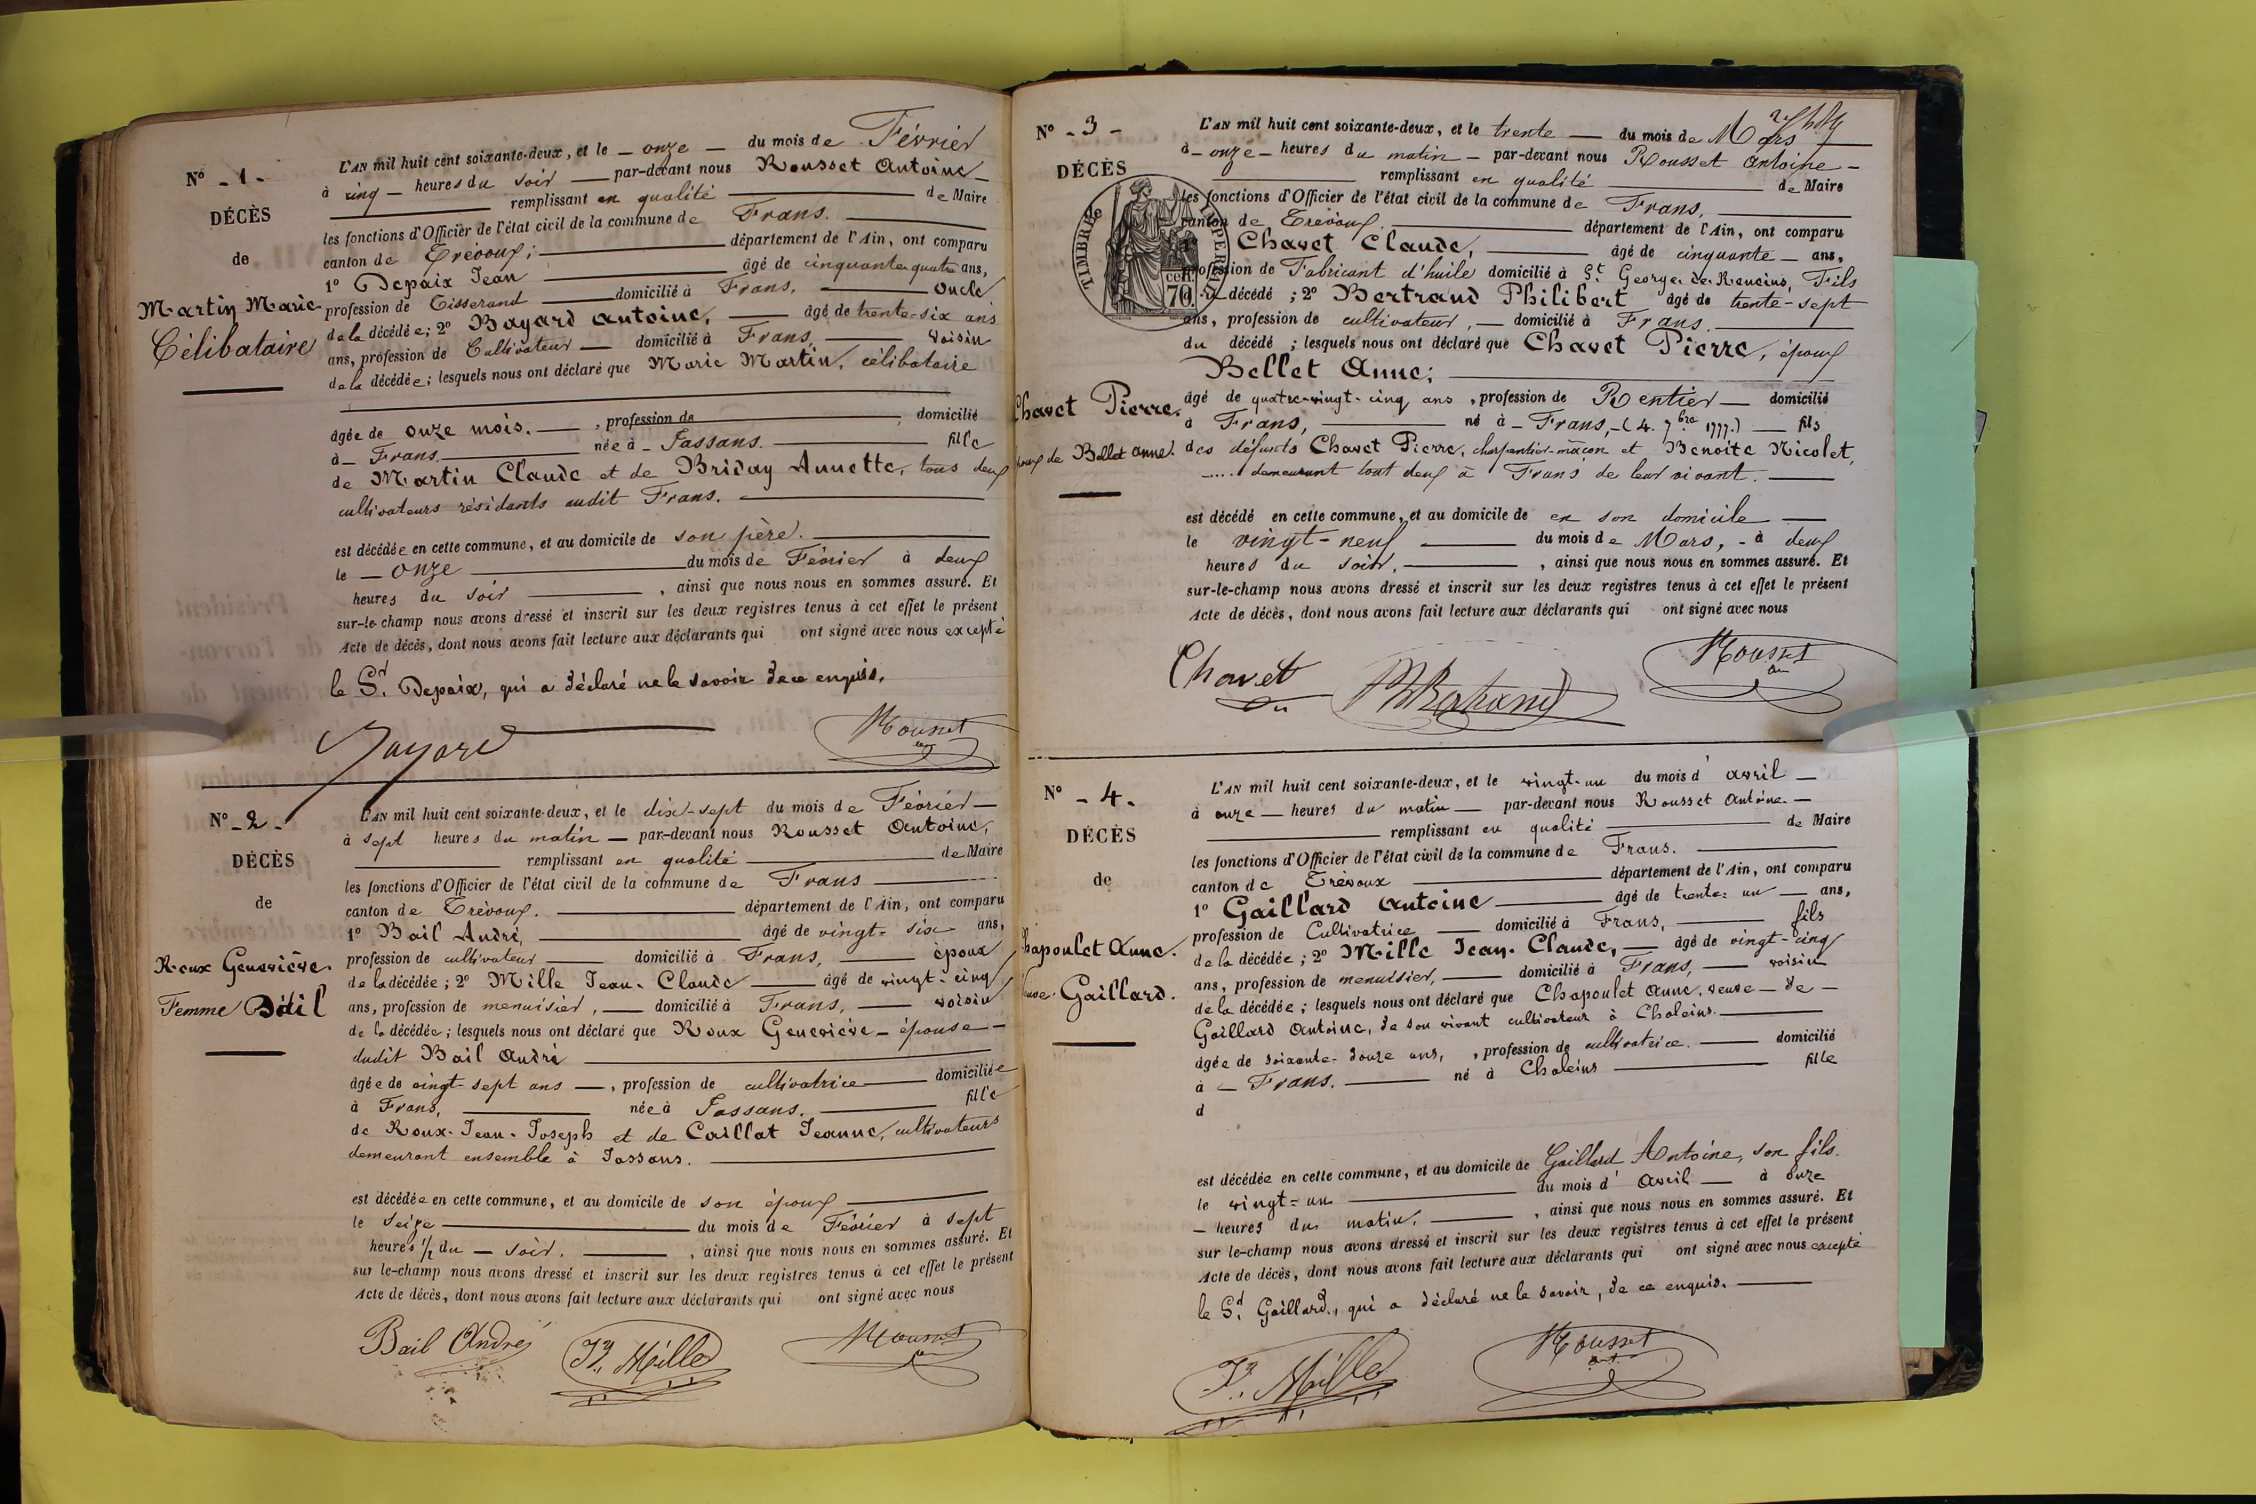 N° - 1 -
DÉCÈS
de
Martin Marie
Célibataire
L'AN mil huit cent soixante-deux, et le - onze - du mois de Février
à cinq - heures du soir - par-devant nous Rousset Antoine -
remplissant en qualité de Maire
les fonctions d'Officier de l'état civil de la commune de Frans.
canton de Trévoux; département de l'Ain, ont comparu
1° Depaix Jean âgé de cinquante quatre ans,
profession de Tisserand domicilié à Frans, oncle
de la décédée; 2° Bayard Antoine, âgé de trente-six ans
ans, profession de Cultivateur domicilié à Frans, voisin
de la décédée; lesquels nous ont déclaré que Marie Martin, célibataire
âgée de onze mois. , profession de , domicilié
à - Frans. née à - Jassans. fille
de Martin Claude et de Briday Annette, tous deux
cultivateurs résidants audit Frans.
est décédée en cette commune, et au domicile de son père.
le - onze du mois de Février à deux
heures du soir , ainsi que nous nous en sommes assuré. Et
sur-le-champ nous avons dressé et inscrit sur les deux registres tenus à cet effet le présent
Acte de décès, dont nous avons fait lecture aux déclarants qui ont signé avec nous excepté
le Sd. Depaix, qui a déclaré ne le savoir de ce enquis.
Bayard Rousset
N° - 2 -
DÉCÈS
de
Roux Geneviève.
Femme Bail
L'AN mil huit cent soixante-deux, et le dix-sept du mois de Février -
à sept heures du matin - par-devant nous Rousset Antoine,
remplissant en qualité de Maire
les fonctions d'Officier de l'état civil de la commune de Frans
canton de Trévoux. département de l'Ain, ont comparu
1° Bail André, âgé de vingt-six ans,
profession de cultivateur domicilié à Frans, époux
de la décédée; 2° Mille Jean-Claude âgé de vingt-cinq
ans, profession de menuisier, domicilié à Frans, voisin
de la décédée; lesquels nous ont déclaré que Roux Geneviève - épouse -
dudit Bail André
âgée de vingt-sept ans - , profession de cultivatrice domiciliée
à Frans, née à Jassans. fille
de Roux-Jean-Joseph et de Caillat Jeanne, cultivateurs
demeurant ensemble à Jassans.
est décédée en cette commune, et au domicile de son époux
le seize du mois de Février à sept
heures 1/2 du - soir. , ainsi que nous nous en sommes assuré. Et
sur le-champ nous avons dressé et inscrit sur les deux registres tenus à cet effet le présent
Acte de décès, dont nous avons fait lecture aux déclarants qui ont signé avec nous
Bail André Mille Rousset
N° - 3 -
DÉCÈS
TIMBRE IMPERIAL
70
Chavet Pierre.
époux de Bellet Anne.
L'AN mil huit cent soixante-deux, et le trente - du mois de Mars
à - onze - heures du matin - par-devant nous Rousset Antoine -
remplissant en qualité de Maire
les fonctions d'Officier de l'état civil de la commune de Frans,
canton de Trévoux. département de l'Ain, ont comparu
Chavet Claude, âgé de cinquante - ans,
profession de Fabricant d'huile domicilié à St. George de Reneins, Fils
décédé; 2° Bertrand Philibert âgé de trente-sept
ans, profession de cultivateur, - domicilié à Frans.
du décédé; lesquels nous ont déclaré que Chavet Pierre, époux
Bellet Anne;
âgé de quatre-vingt-cinq ans , profession de Rentier domicilié
à Frans, né à - Frans, - (4. 7bre 1777.) fils
des défunts Chavet Pierre, charpentier-maçon et Benoite Nicolet,
demeurant tout deux à Frans de leur vivant.
est décédé en cette commune, et au domicile de en son domicile
le vingt-neuf du mois de Mars, - à deux
heures du soir, , ainsi que nous nous en sommes assuré. Et
sur-le-champ nous avons dressé et inscrit sur les deux registres tenus à cet effet le présent
Acte de décès, dont nous avons fait lecture aux déclarants qui ont signé avec nous
Chavet Bertrand Rousset
N° - 4 -
DÉCÈS
de
Chapoulet Anne.
Veuve Gaillard.
L'AN mil huit cent soixante-deux, et le vingt-un du mois d'avril -
à onze - heures du matin - par-devant nous Rousset Antoine. -
remplissant en qualité de Maire
les fonctions d'Officier de l'état civil de la commune de Frans.
canton de Trévoux département de l'Ain, ont comparu
1° Gaillard Antoine âgé de trente-un - ans,
profession de Cultivatrice domicilié à Frans, fils
de la décédée; 2° Mille Jean-Claude, - âgé de vingt-cinq
ans, profession de menuisier, domicilié à Frans, voisin
de la décédée; lesquels nous ont déclaré que Chapoulet Anne, veuve - de -
Gaillard Antoine, de son vivant cultivateur à Choleins.
âgée de soixante-douze ans, , profession de cultivatrice. domicilié
à - Frans. né à Choleins fille
d
est décédée en cette commune, et au domicile de Gaillard Antoine, son fils.
le vingt-un du mois d'avril à onze
- heures du matin. , ainsi que nous nous en sommes assuré. Et
sur le-champ nous avons dressé et inscrit sur les deux registres tenus à cet effet le présent
Acte de décès, dont nous avons fait lecture aux déclarants qui ont signé avec nous excepté
le Sd. Gaillard, qui a déclaré ne le savoir, de ce enquis.
Mille Rousset